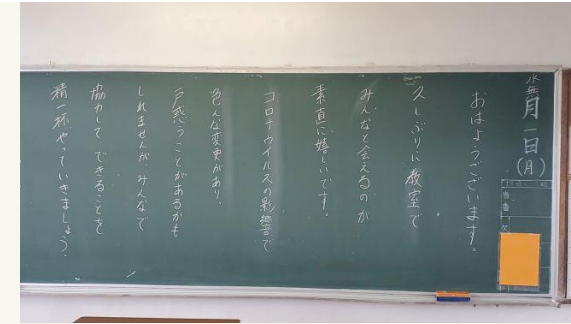 水無月一日(月)
当番
欠
おはようございます。
久しぶりに教室で
みんなと会えるのが
素直に嬉しいです。
コロナウイルスの影響で
色んな変更があり、
戸惑うことがあるかも
しれませんがみんなで
協力して できることを
精一杯やっていきましょう。